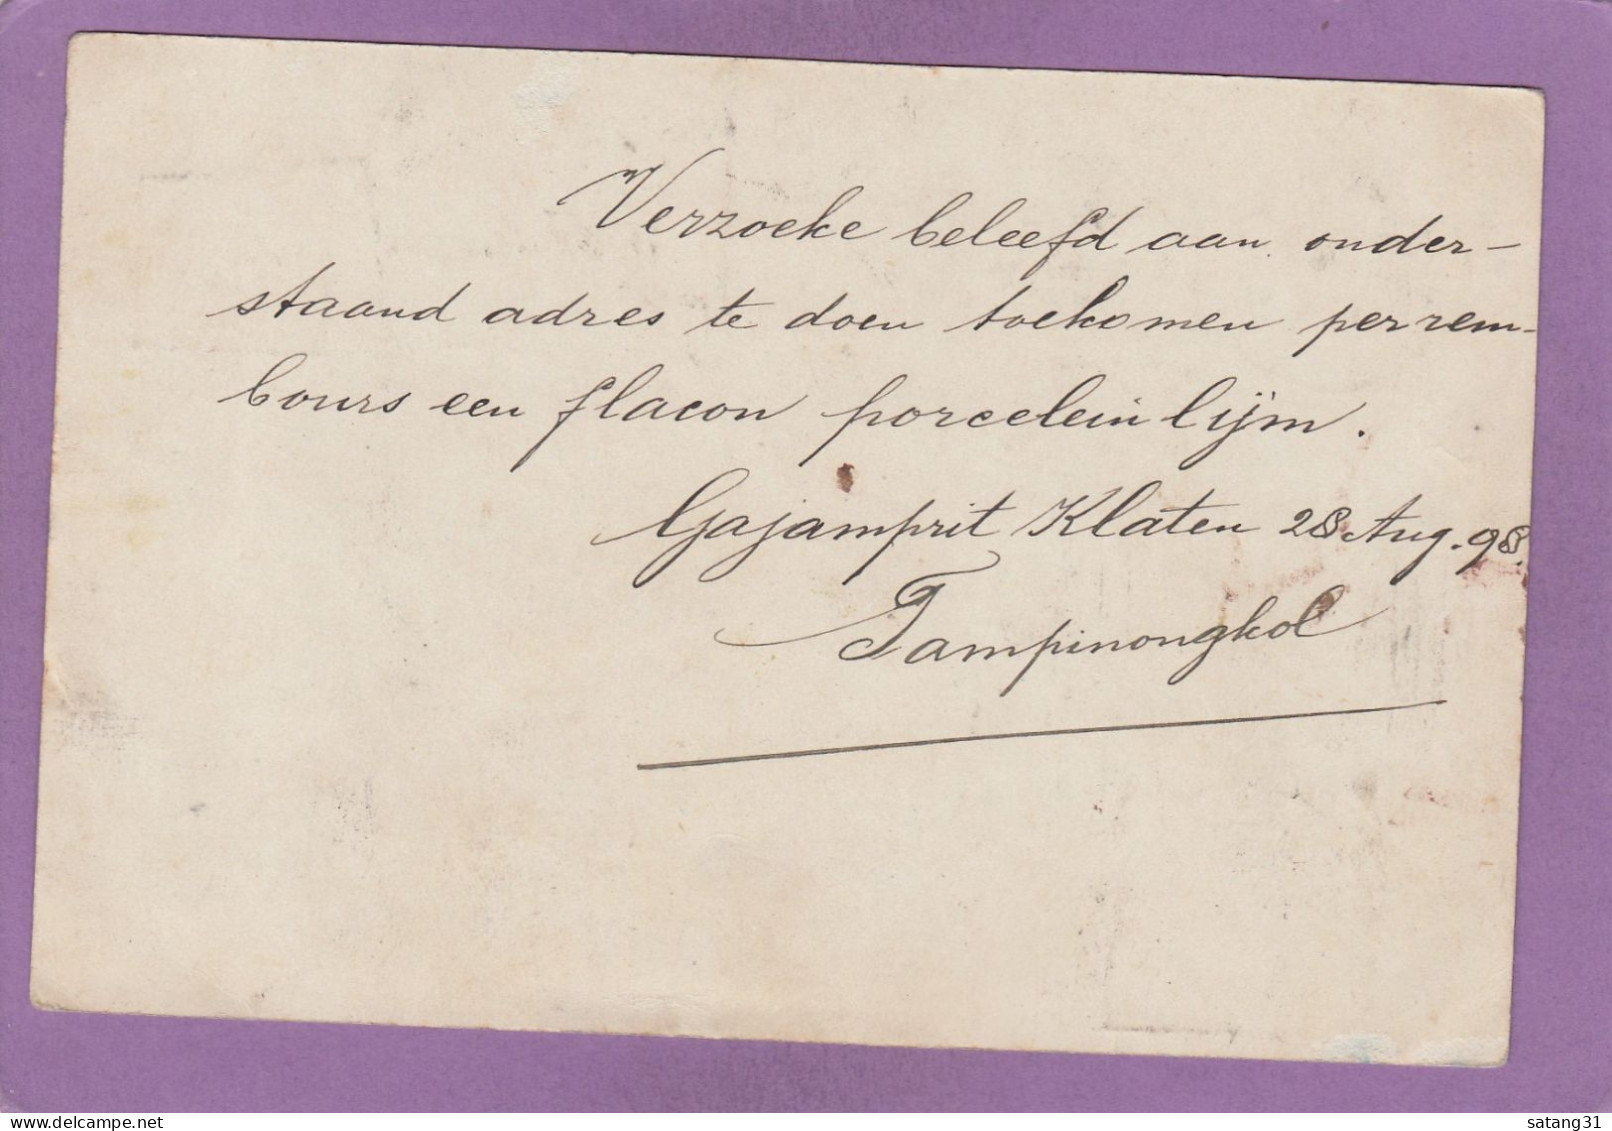 Verzoeke beleefd aan onder-
staand adres te doen toekomen per rem-
bours een flacon porcelein lijm.
Gajamprit Klaten 28 Aug. 98.
Tampinongkol
delcampe.net
satang31